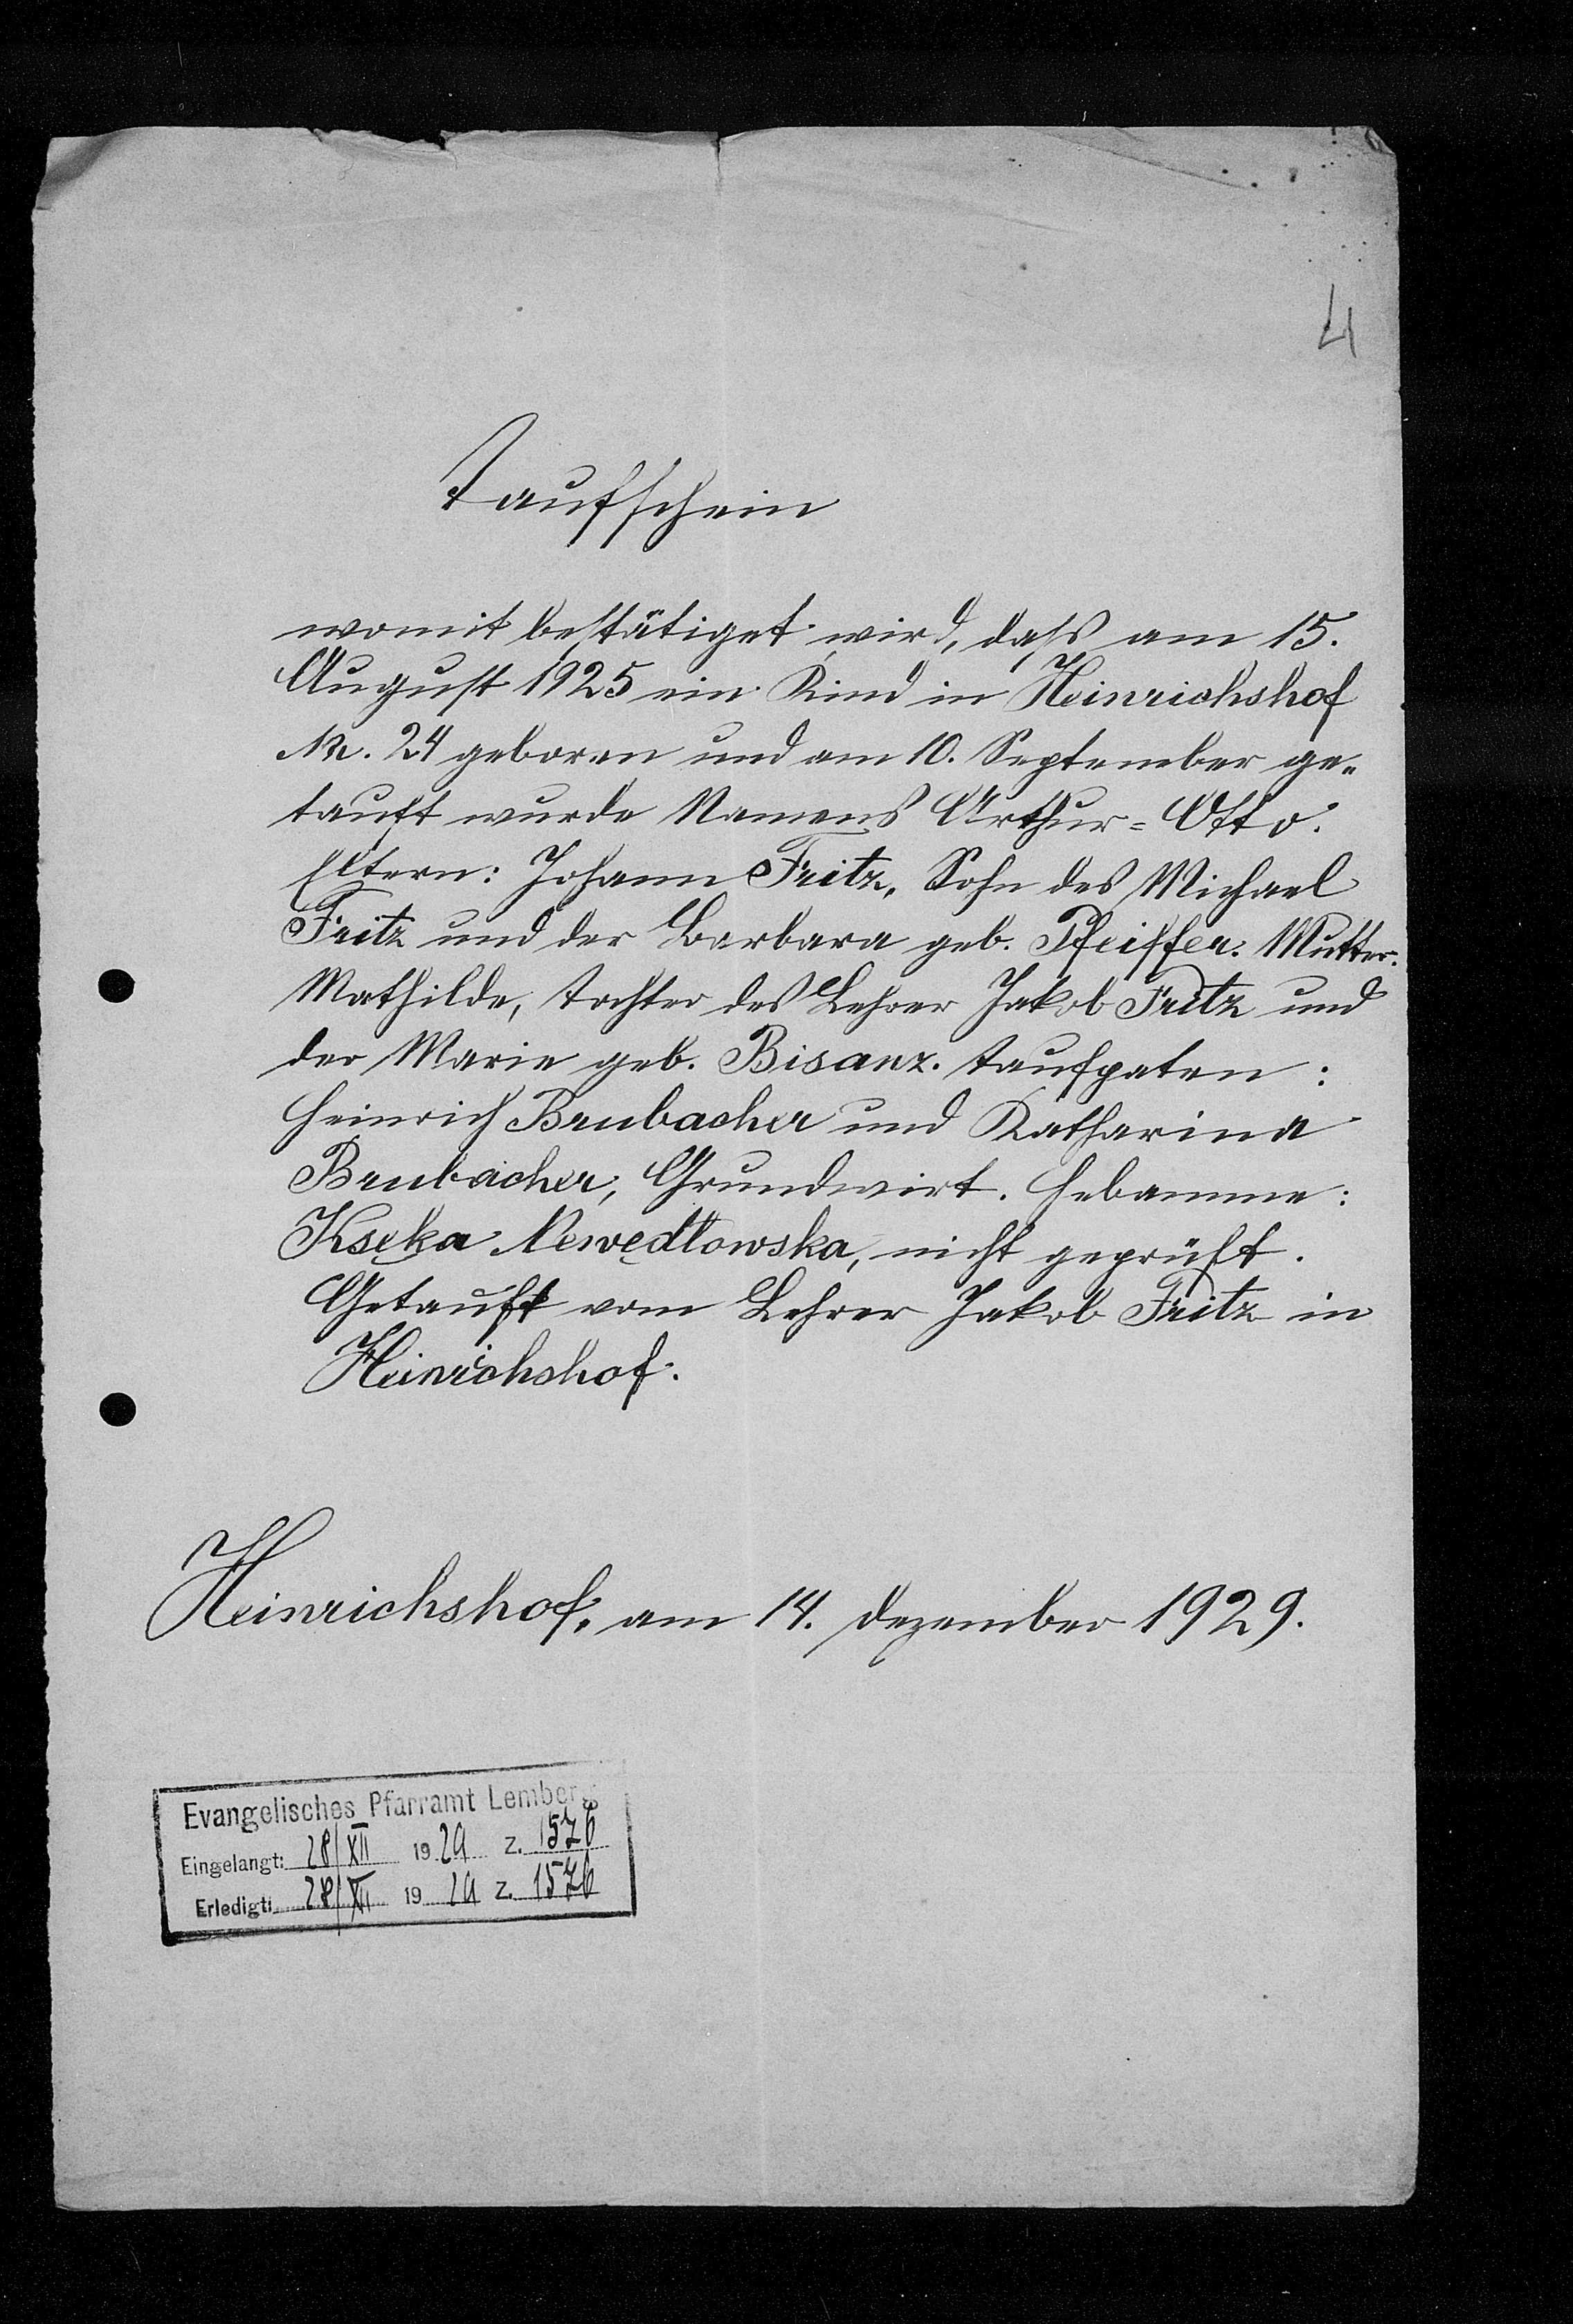 4
Taufschein
womit bestätiget wird, dass am 15.
August 1925 ein Kind in Heinrichshof
Nr. 24 geboren und am 10. September ge-
tauft wurde Namens Arthur-Otto.
Eltern: Johann Fritz, Sohn des Michael
Fritz und der Barbara geb. Pfeiffer. Mutter:
Mathilde, Tochter des Lehrer Jakob Fritz und
der Marie geb. Bisanz. Taufpaten:
Heinrich Brubacher und Katharina
Brubacher, Grundwirt. Hebamme:
Kseka Newedłowska, nicht geprüft.
Getauft vom Lehrer Jakob Fritz in
Heinrichshof.
Heinrichshof, am 14. Dezember 1929.
Evangelisches Pfarramt Lemberg
Eingelangt: 28/XII 1929 Z. 1576
Erledigt: 28/XII 1929 Z. 1576